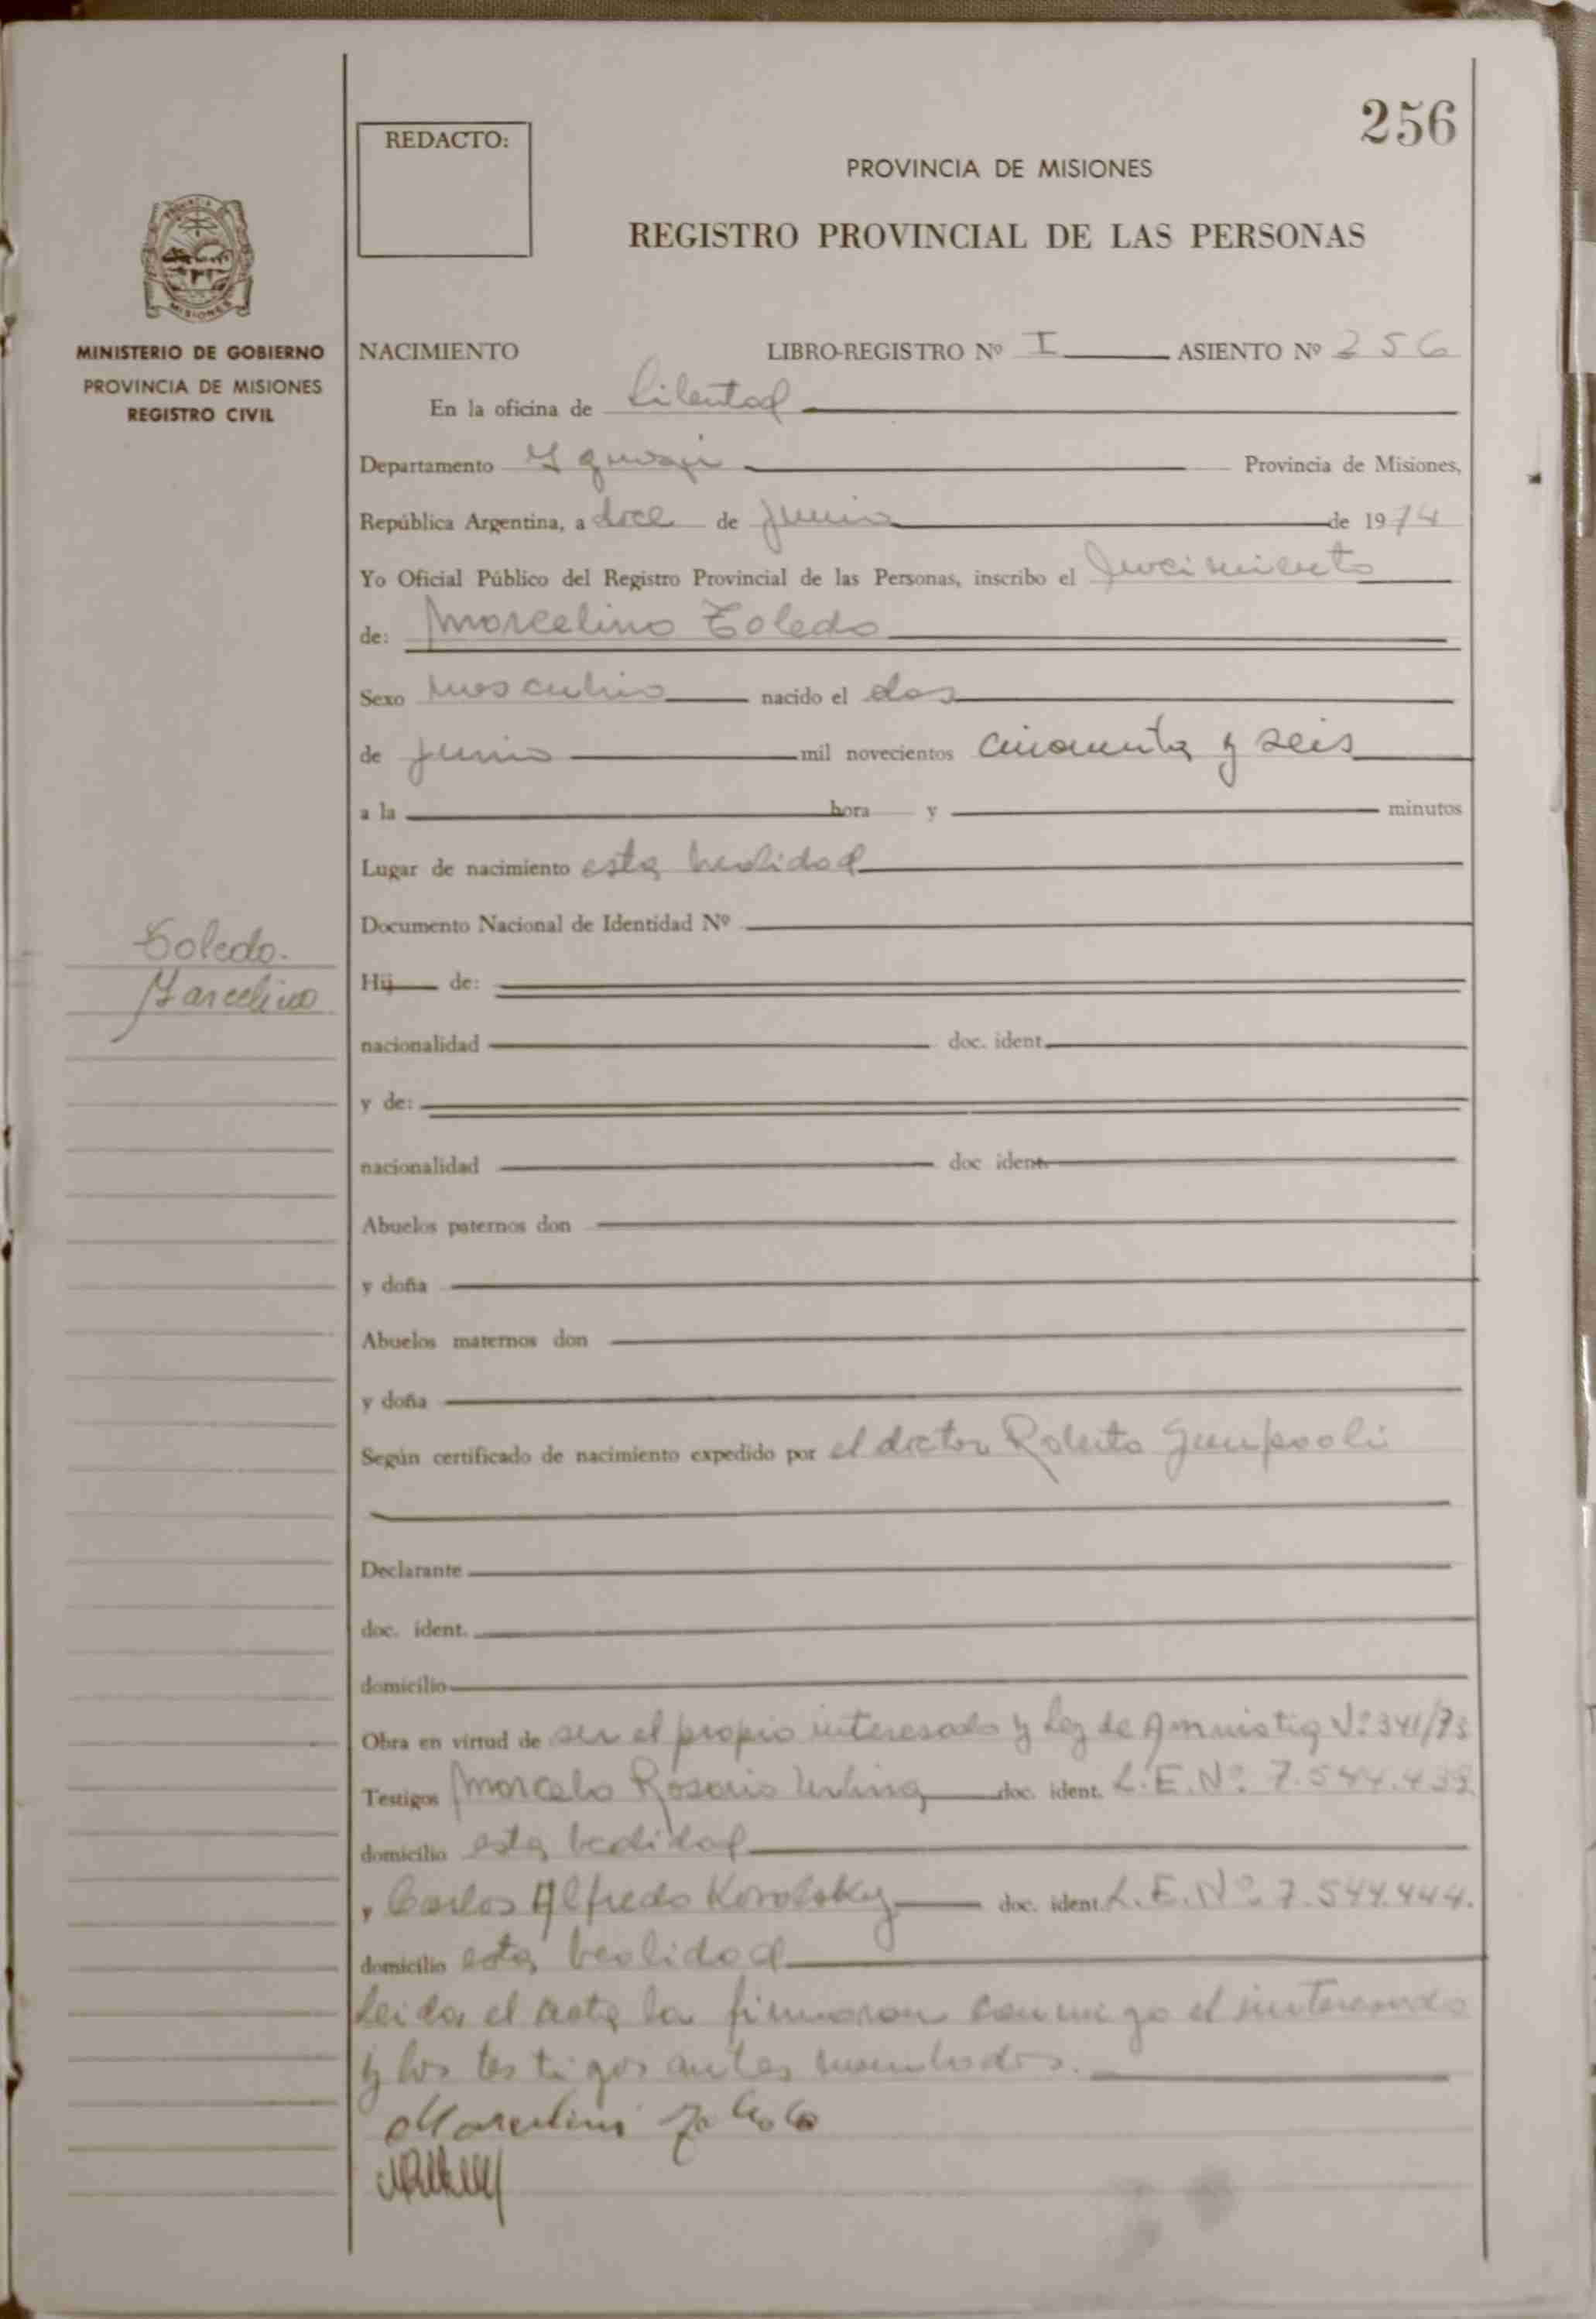 256
REDACTO:
PROVINCIA DE MISIONES
REGISTRO PROVINCIAL DE LAS PERSONAS
MISIONES
MINISTERIO DE GOBIERNO
PROVINCIA DE MISIONES
REGISTRO CIVIL
NACIMIENTO LIBRO-REGISTRO Nº I ASIENTO Nº 256
En la oficina de Libertad
Departamento Iguazú Provincia de Misiones,
República Argentina, a doce de Junio de 1974
Yo Oficial Público del Registro Provincial de las Personas, inscribo el nacimiento
de: Marcelino Toledo
Sexo masculino nacido el dos
de junio mil novecientos cincuenta y seis
a la hora y minutos
Lugar de nacimiento esta localidad
Documento Nacional de Identidad Nº
Toledo.
Marcelino
Hij de:
nacionalidad doc. ident.
y de:
nacionalidad doc ident.
Abuelos paternos don
y doña
Abuelos maternos don
y doña
Según certificado de nacimiento expedido por el doctor Roberto
Declarante
doc. ident.
domicilio
Obra en virtud de ser el propio interesado y Ley de Amnistia Nº 341/73
Testigos Marcelo Rosario doc. ident. L.E.Nº 7.544.439
domicilio esta localidad
y Carlos Alfredo doc. ident. L.E.Nº 7.544.444.
domicilio esta localidad
Leida el acta la firmaron conmigo el interesado
y los testigos antes nombrados.
Marcelino Toledo